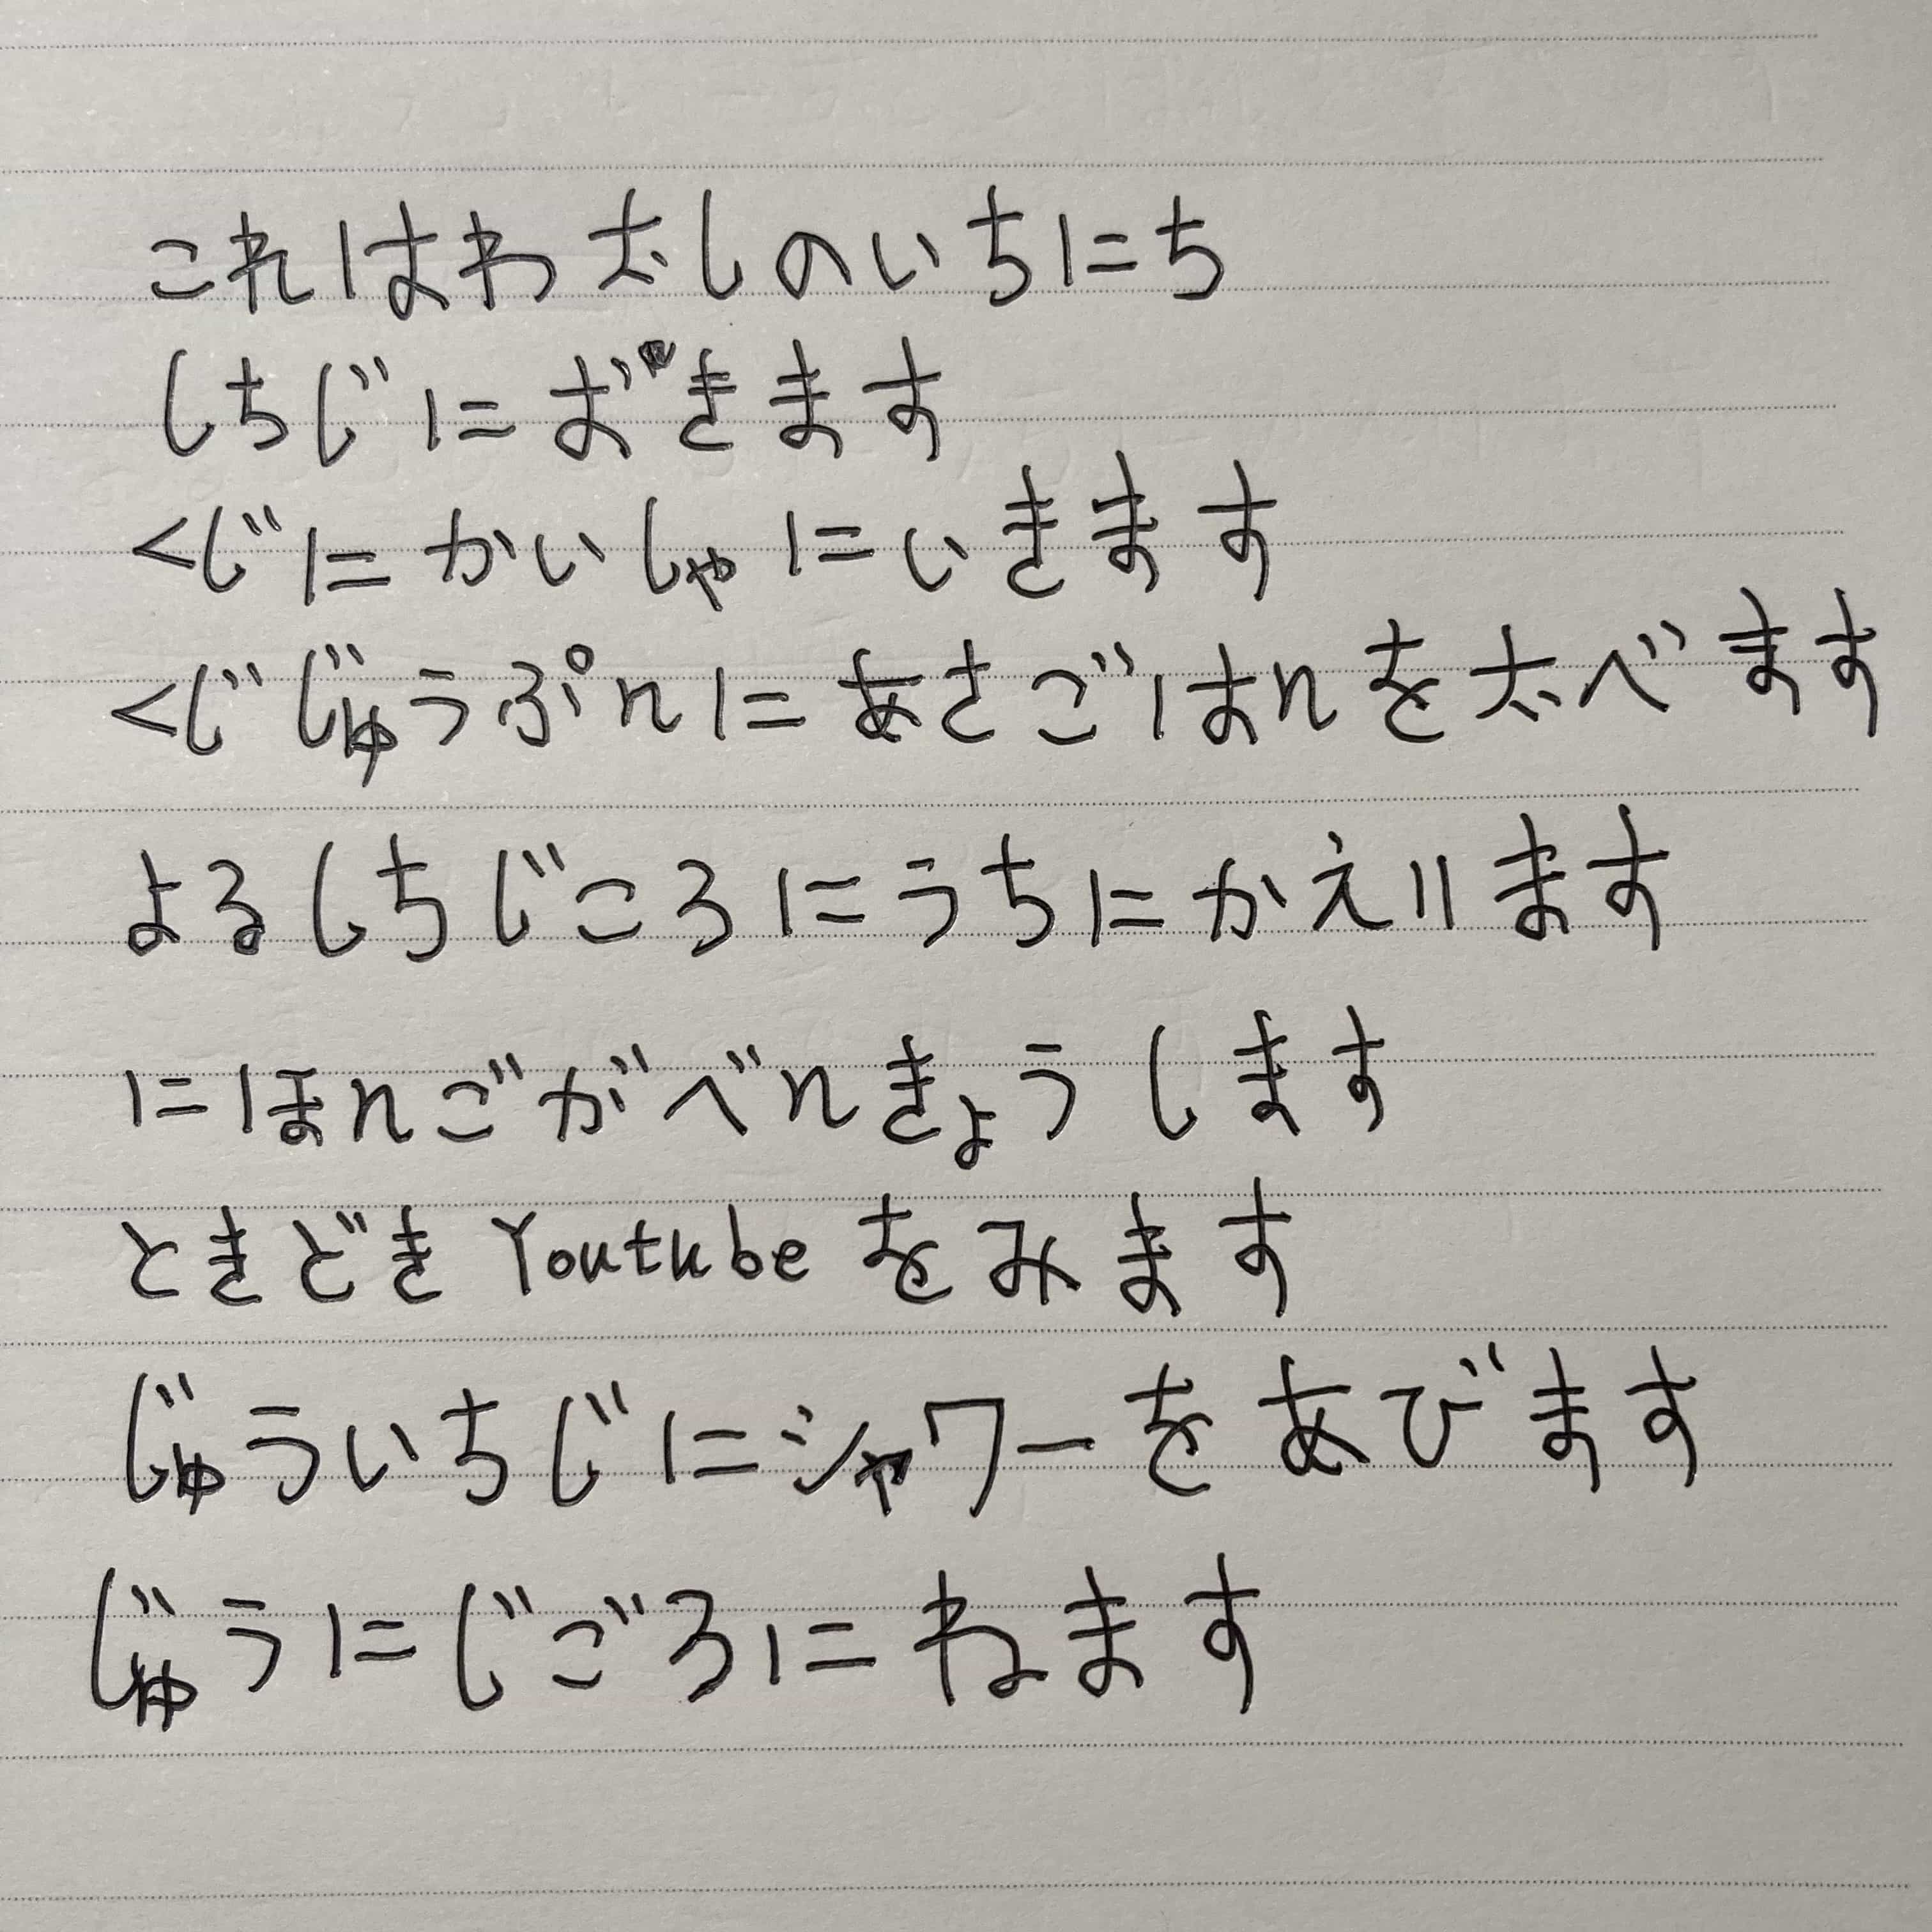 これはわたしのいちにち
しちじにおきます
くじにかいしゃにいきます
くじじゅうぷんにあさごはんをたべます
よるしちじころにうちにかえります
にほんごがべんきょうします
ときどきYoutubeをみます
じゅういちじにシャワーをあびます
じゅうにじごろにねます